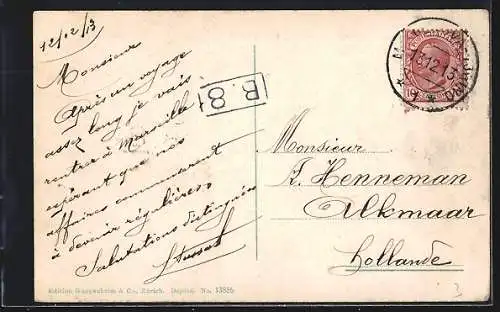 12/12/13
Monsieur
Après un voyage
assez long je vais
rentrer à Marseille
espérant que nos
affaires commencent
à devenir régulières
Salutations distinguées
B. 81
Monsieur
Henneman
Alkmaar
Hollande
Edition Guggenheim & Co., Zürich. Dépôsé. No. 13825